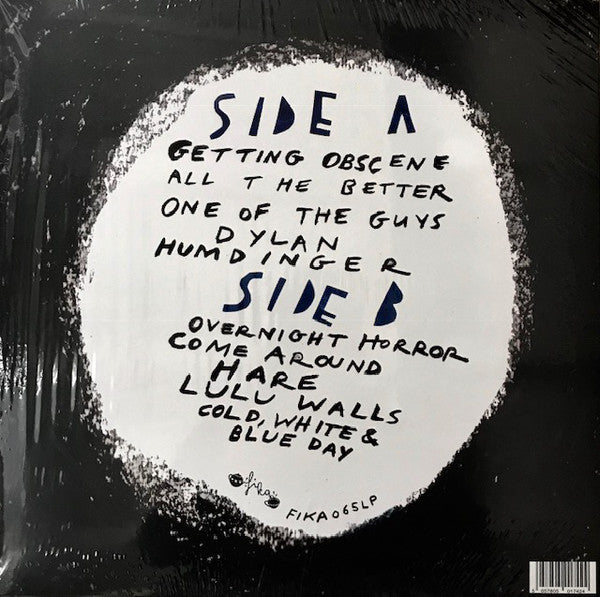 SIDE A
GETTING OBSCENE
ALL THE BETTER
ONE OF THE GUYS
DYLAN
HUMDINGER
SIDE B
OVERNIGHT HORROR
COME AROUND
HARE
LULU WALLS
COLD, WHITE &
BLUE DAY
fika
FIKA065LP
5 057805 017404